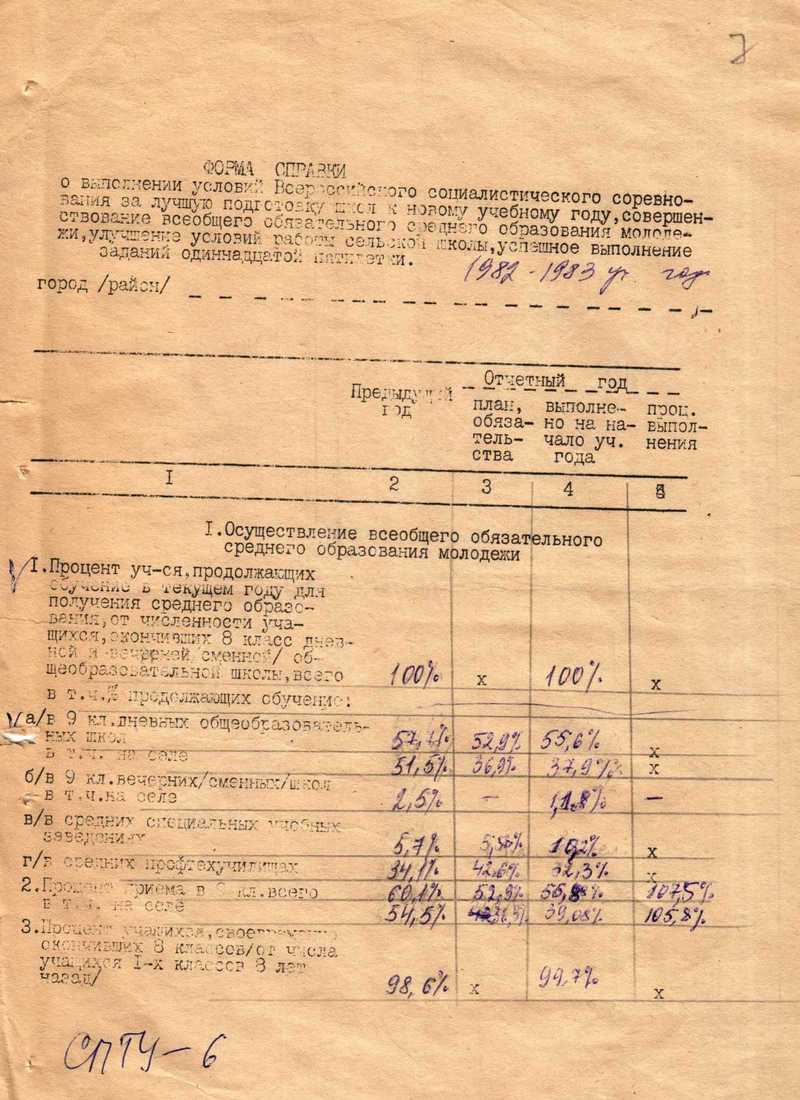 7
ФОРМА СПРАВКИ
о выполнении условий Всероссийского социалистического соревно-
вания за лучшую подготовку школ к новому учебному году,совершен-
ствование всеобщего обязательного среднего образования молоде-
жи,улучшение условий работы сельской школы,успешное выполнение
заданий одиннадцатой пятилетки.
1982-1983 уч. год
город /район/
Отчетный год
Предыдущий год
план, обяза-тель-ства
выполне-но на на-чало уч. года
проц. выпол-нения
I 2 3 4 5
I.Осуществление всеобщего обязательного
среднего образования молодежи
I.Процент уч-ся,продолжающих
обучение в текущем году для
получения среднего образо-
вания,от численности уча-
щихся,окончивших 8 класс днев-
ной и вечерней/сменной/ об-
щеобразовательной школы,всего 100% х 100% х
в т.ч.% продолжающих обучение:
а/в 9 кл.дневных общеобразователь-
ных школ 52,9% 55,6% х
в т.ч. на селе 51,5% 36,9% 37,9% х
б/в 9 кл.вечерних/сменных/школ
в т.ч.на селе 2,5% - 1,8% -
в/в средних специальных учебных
заведениях 5,7% х
г/в средних профтехучилищах 34,1% 42,6% 32,3% х
2.Процент приема в 9 кл.всего 60,1% 52,9% 107,5%
в т.ч. на селе 54,5% 39,08% 105,8%
3.Процент учащихся,своевременно
окончивших 8 классов/от числа
учащихся I-х классов 8 лет
назад/ 98,6% х 99,7% х
СПТУ-6